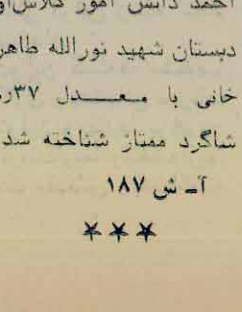 احمد دانش آموز کلاس او
دبستان شهید نورالله طاهر
خانی با معدل ۳۷ر
شاگرد ممتاز شناخته شد
آ ـ ش ۱۸۷
★★★